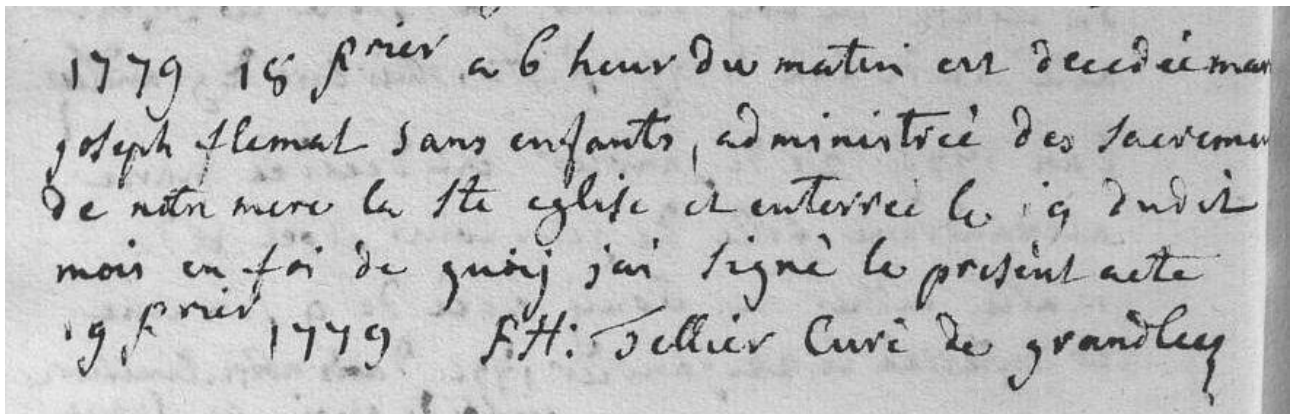 1779 18 frier a 6 heur du matin est decedeé mar
joseph flemal sans enfants, administreé des sacremen
de notre mere la Ste eglise et enterreé le 19 dudit
mois en foi de quoij j'ai signé le présent acte
19 frier 1779 F H: Tellier Curé de grandleez